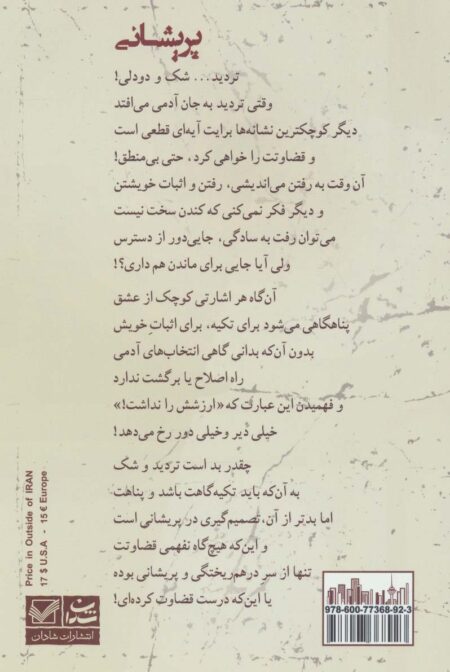 پریشانی
تردید... شک و دودلی!
وقتی تردید به جان آدمی می‌افتد
دیگر کوچکترین نشانه‌ها برایت آیه‌ای قطعی است
و قضاوتت را خواهی کرد، حتی بی‌منطق!
آن وقت به رفتن می‌اندیشی، رفتن و اثبات خویشتن
و دیگر فکر نمی‌کنی که کندن سخت نیست
می‌توان رفت به سادگی، جایی‌دور از دسترس
ولی آیا جایی برای ماندن هم داری؟!
آن‌گاه هر اشارتی کوچک از عشق
پناهگاهی می‌شود برای تکیه، برای اثباتِ خویش
بدون آن‌که بدانی گاهی انتخاب‌های آدمی
راه اصلاح یا برگشت ندارد
و فهمیدن این عبارت که «ارزشش را نداشت!»
خیلی دیر وخیلی دور رخ می‌دهد!
چقدر بد است تردید و شک
به آن‌که باید تکیه‌گاهت باشد و پناهت
اما بدتر از آن، تصمیم‌گیری در پریشانی است
و این‌که هیچ‌گاه نفهمی قضاوتت
تنها از سرِ درهم‌ریختگی و پریشانی بوده
یا این‌که درست قضاوت کرده‌ای!
Price in Outside of IRAN
17 $ U.S.A - 15 € Europe
شادان
انتشارات شادان
978-600-77368-92-3